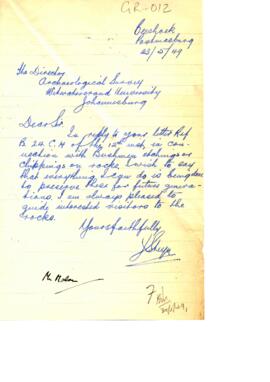 GR-012
Postmasburg
23/5/49
The Director
Archaeological Survey
Witwatersrand University
Johannesburg
Dear Sir
In reply to your letter Ref
B.24.C.H of the 12th inst, in con-
nection with Bushmen etchings or
chippings on rocks I wish to say
that everything I can do is being done
to preserve these for future genera-
tions. I am always pleased to
guide interested visitors to the
rocks.
Yours faithfully